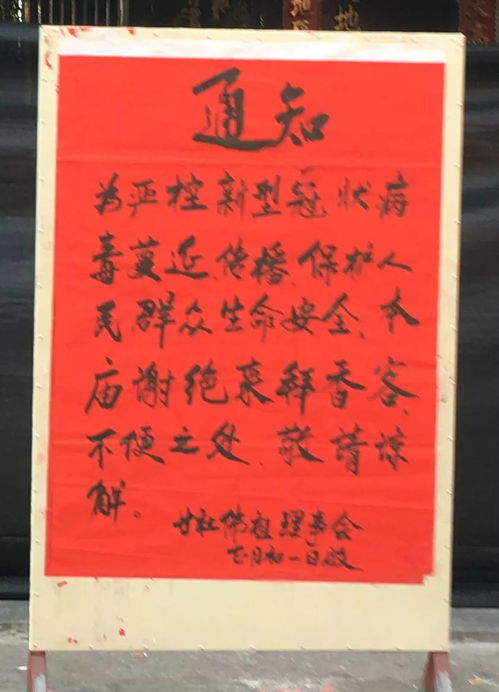 通知
为严控新型冠状病
毒蔓延、传播、保护人
民群众生命安全、本
庙谢绝来拜香客、
不便之处、敬请谅
解。
廿社佛祖理事会
七月初一日啟
地
地